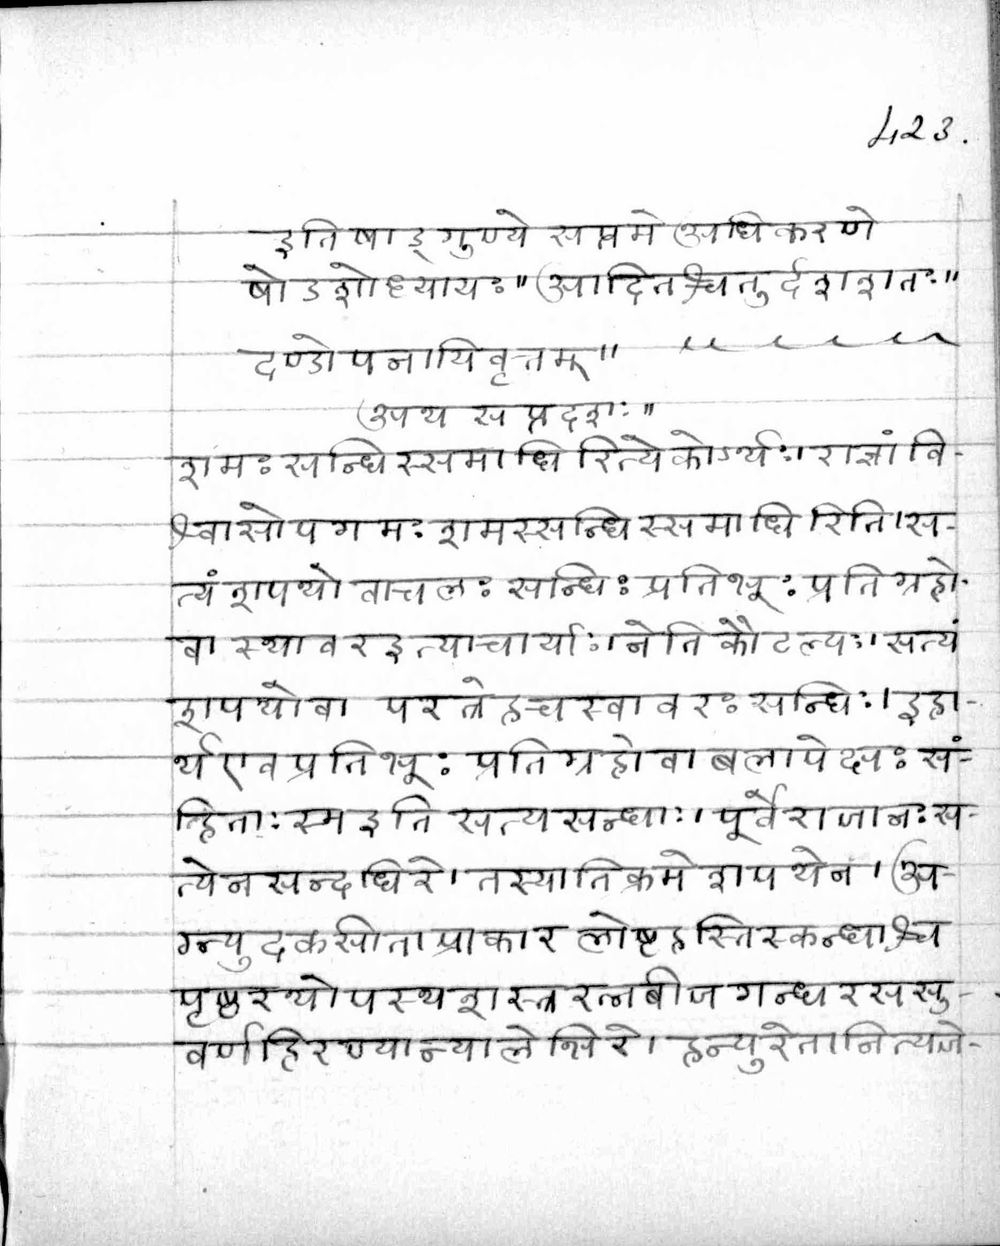 423.
इति षाड्गुण्ये सप्तमे अधिकरणे
षोडशोध्यायः" आदितश्चतुर्दशशतः"
दण्डोपनायिवृत्तम्"
अथ सप्तदशः"
शमः सन्धिस्समाधिरित्येकोऽर्थः। राज्ञां वि-
श्वासोपगमः शमस्सन्धिस्समाधिरिति। स-
त्यं शपथो वाचलः सन्धिः प्रतिभूः प्रतिग्रहो-
वा स्थावर इत्याचार्याः। नेति कौटल्यः। सत्यं
शपथोवा परत्रेहचस्थावरः सन्धिः। इहा-
र्थ एव प्रतिभूः प्रतिग्रहो वा बलापेक्षः सं-
हिताः स्म इति सत्यसन्धाः। पूर्वे राजानः स-
त्येन सन्दधिरे। तस्यातिक्रमे शपथेन। अ-
ग्न्युदकसीताप्राकारलोष्टहस्तिस्कन्धाश्च
पृष्ठरथोपस्थशस्त्ररत्नबीजगन्धरससु-
वर्णहिरण्यान्यालेभिरे। हन्युरेतानि त्यजे-